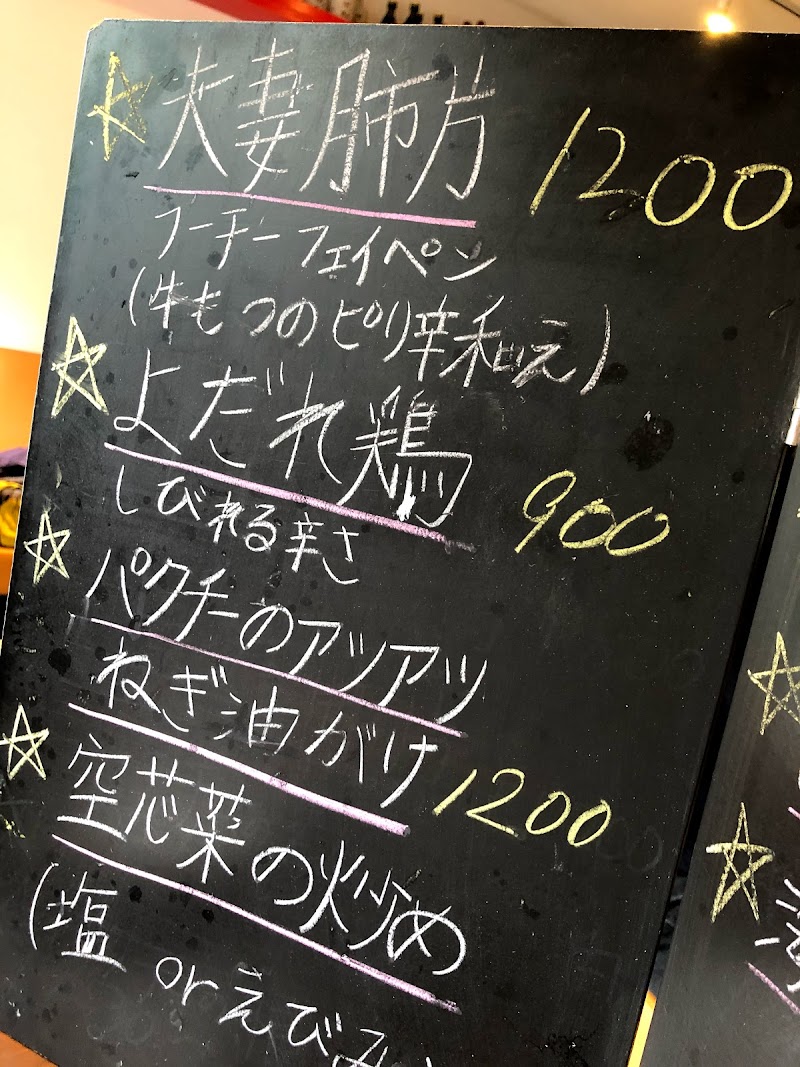 ☆夫妻肺片 1200
フーチーフェイペン
(牛もつのピリ辛和え)
☆よだれ鶏 900
しびれる辛さ
☆パクチーのアツアツ
ねぎ油がけ 1200
☆空芯菜の炒め
(塩 or えび